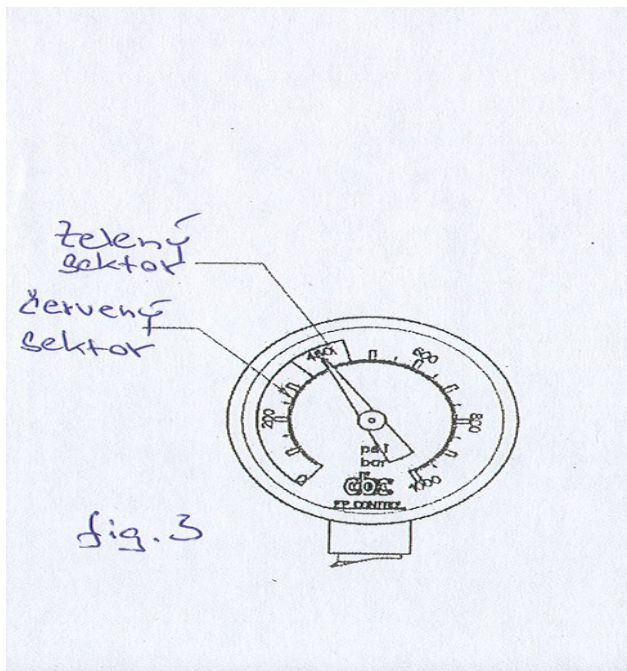 Zelený
sektor
červený
sektor
400
600
200
800
0
1000
psi
bar
cbc
F.P. CONTROL
fig. 3